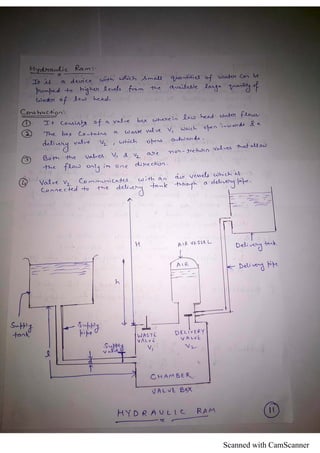 Hydraulic Ram:-
It is a device with which small quantities of water can be
pumped to higher levels from the available large quantity of
water of low head.
Construction:-
① It consists of a valve box wherein low head water flows
② The box contains a waste valve V₁ which open inwards & a
delivery valve V₂, which opens outwards.
③ Both the valves V₁ & V₂ are non-return valves that allow
the flow only in one direction.
④ Valve V₂ communicates with an air vessels which is
connected to the delivery tank through a delivery pipe.
H
AIR VESSEL
Delivery tank
AIR
Delivery pipe
h
Supply
tank
Supply
pipe
Supply
valve
WASTE
VALVE
V₁
DELIVERY
VALVE
V₂
l
CHAMBER
VALVE BOX
HYDRAULIC RAM
11
Scanned with CamScanner